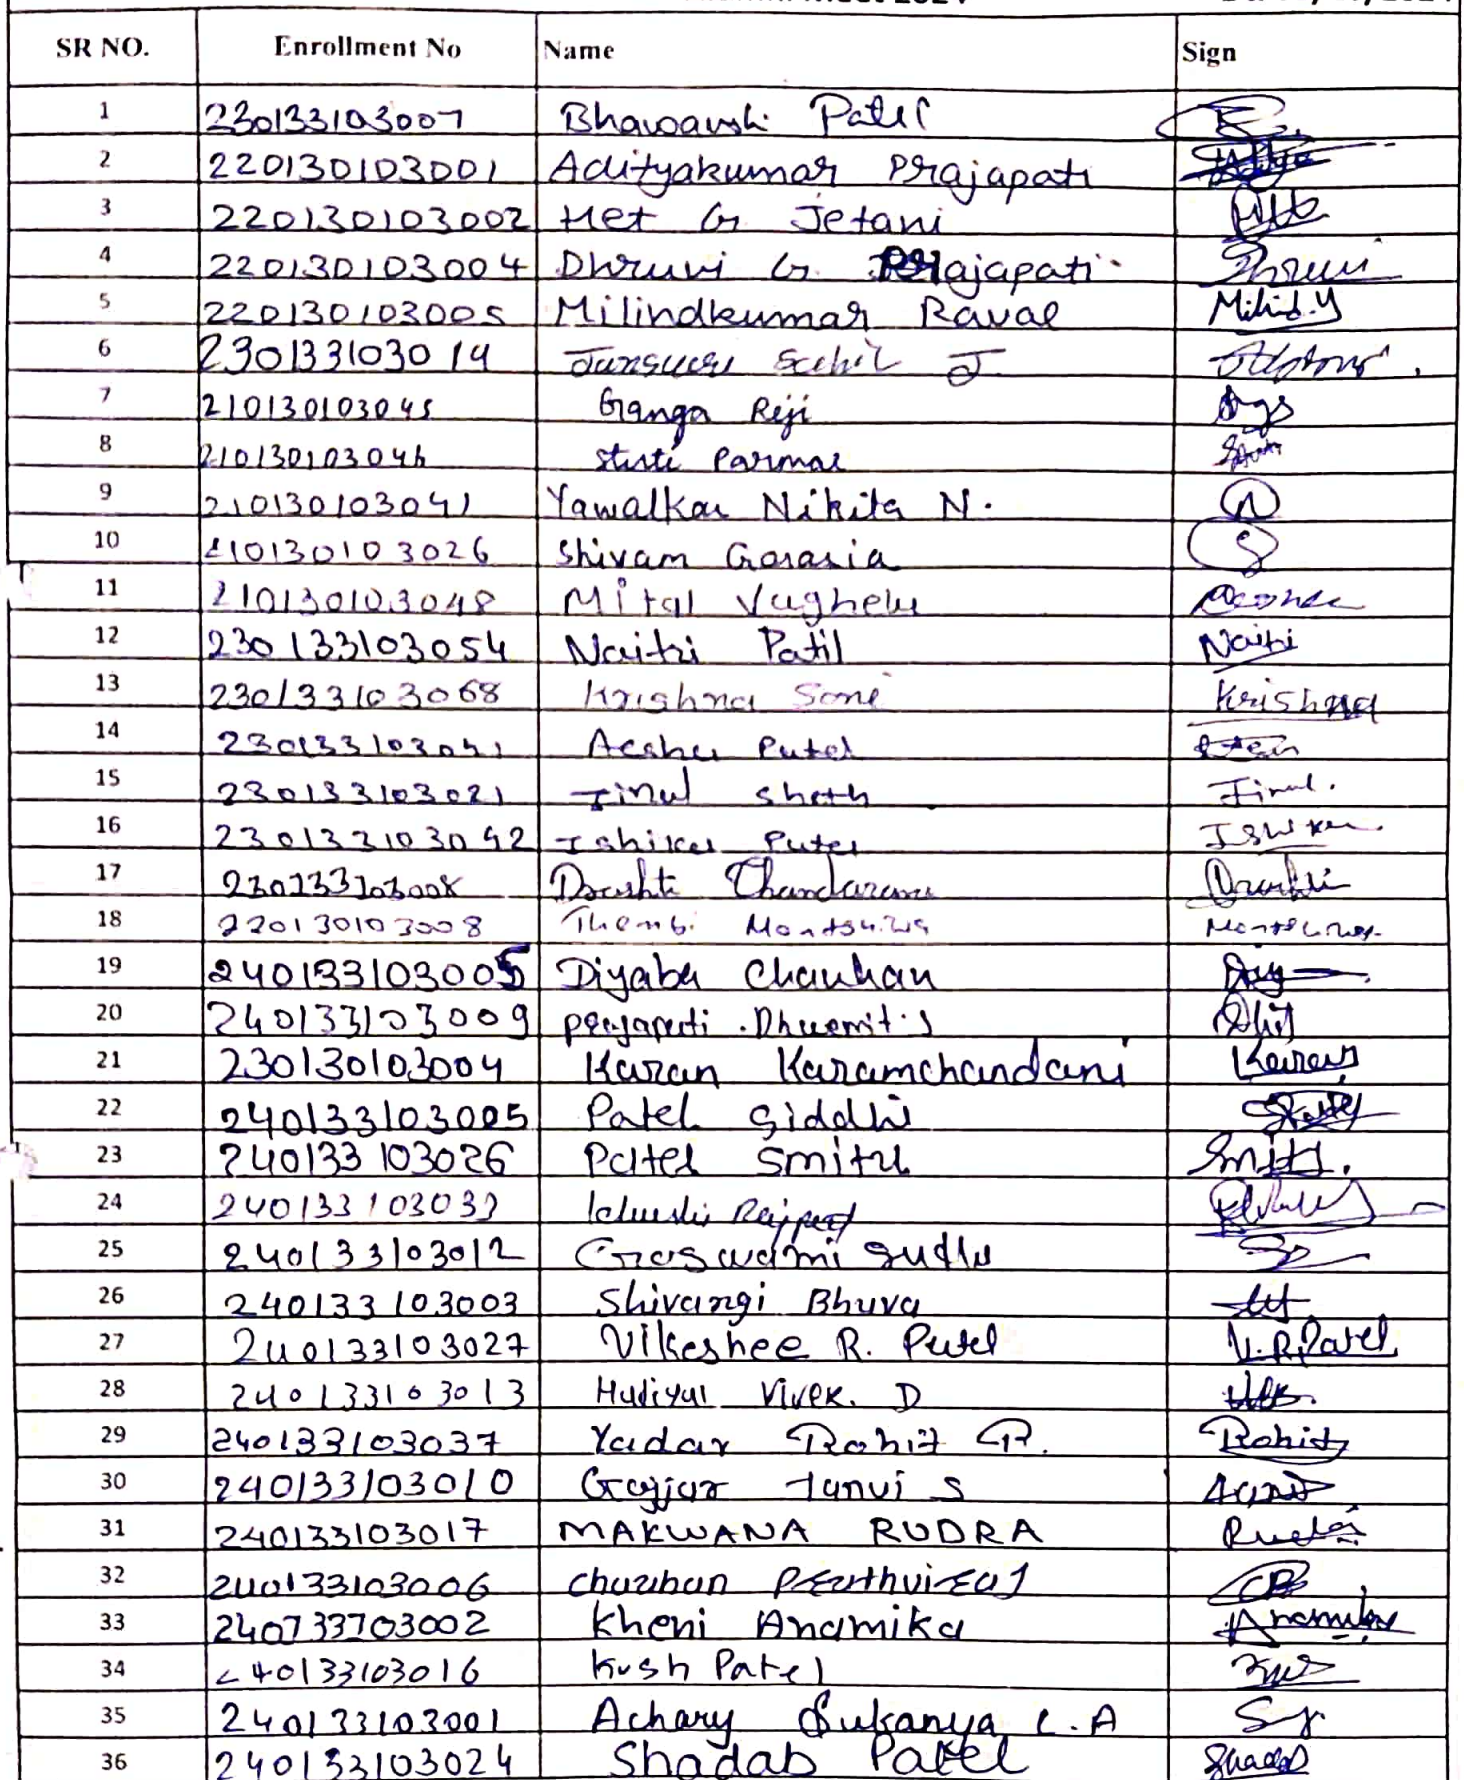 SR NO. Enrollment No Name Sign
1 230133103007 Patel
2 220130103001 Adityakumar Prajapati
3 220130103002 Het G Jetani
4 220130103004 Dhruvi G. Prajapati Dhruvi
5 220130103005 Milindkumar Raval Milind.Y
6 230133103014 J.
7 210130103045 Ganga Reji
8 210130103046 Stuti Parmar
9 210130103041 Yawalkar Nikita N.
10 210130103026 Shivam Gorasia
11 210130103048 Mital Vaghela
12 230133103054 Naitri Patil Naitri
13 230133103068 Krishna Soni Krishna
14 230133103041 Patel
15 230133103021 Jinal Sheth Jinal.
16 230133103042 Ishika Patel
17 Drashti Chandarana Drashti
18 220130103008 Thembi
19 240133103005 Diyaba Chauhan
20 240133103009
21 230130103004 Karan Karamchandani Karan
22 240133103005 Patel Siddhi
23 240133103026 Patel Smitu
24 Rajput
25 240133103012 Goswami
26 240133103003 Shivangi Bhuva
27 240133103027 R. Patel V.R.Patel
28 240133103013 Vivek. D
29 240133103037 Yadav Rohit R. Rohit
30 240133103010 Gajjar Tanvi S
31 240133103017 MAKWANA RUDRA Rudra
32 240133103006 Chauhan
33 240133103002 Kheni Anamika Anamika
34 240133103016 Kush Patel
35 240133103001 Achary Sukanya C.A
36 240133103024 Shadab Patel Shadab